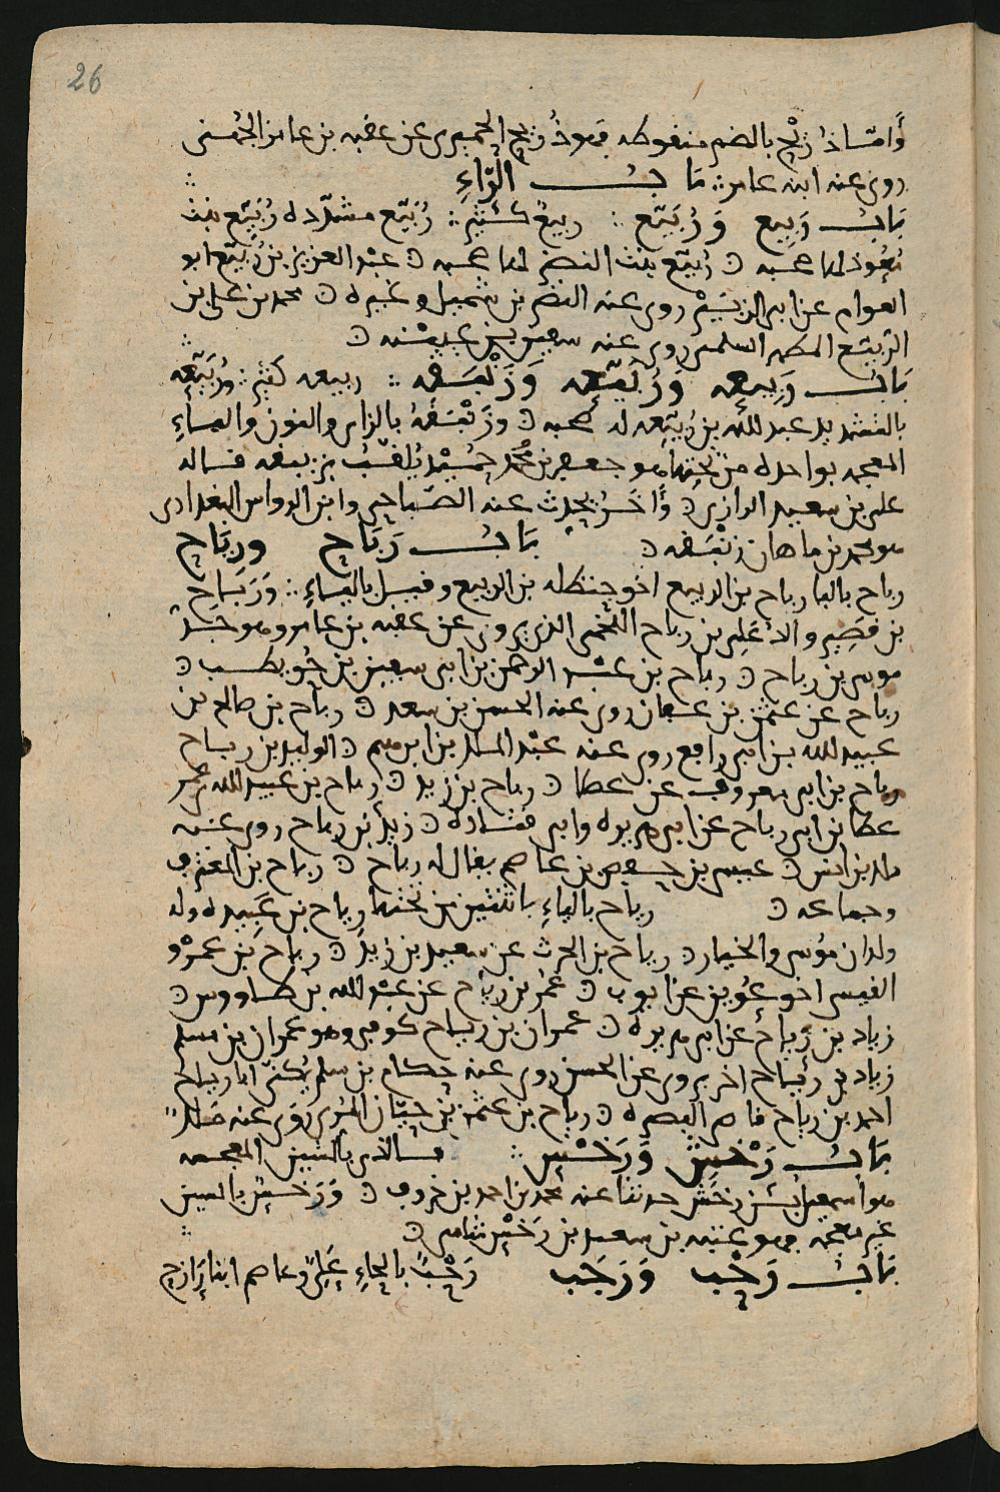 26
وأما ذُرَيْح بالضم منقوطه فهو ذُريح الحميري عن عقبه بن عامر الجُهنى
روى عنه ابنه عامر ∴ بَابُ الرّاءِ
بَابُ رَبِيع وَرُبَيّع ∴ ربيعٌ كثير ∴ رُبَيّع مشدّده رُبَيّع بنت
مُعَوذ لها صحبه ه رُبَيّع بنت النضر لها صحبه ه عبد العزيز بن رُبَيّع ابو
العوام عن ابى الزبَيْر روى عنه النضر بن شميل وغيره ه محمد بن على بن
الرُبَيّع السلمى روى عنه سفين بن عيينه ه
بَابُ رَبِيعه وَرُبَيّعه وَزَنْبَقه ∴ ربيعه كثير ∴ ورُبَيّعه
بالتشديد عبد الله بن رُبَيّعه له صحبه ه وزَنْبَقَهُ بالزاى والنون والباءِ
المعجمه بواحده من تحتها هو جعفر بن محمد يُلقبُ بزنبقه قاله
على بن سعيد الرازى ه وَآخَرُ يحدث عنه الصّباحى وابن الرواس البغدادى
هو محمد بن ماهان زنْبَقه ه بَابُ رَبَاح ورِيَاح
رباح بالبا رباح بن الربيع اخو حنظله بن الربيع وقيل بالياءِ ∴ وَرَبَاح
بن قصِير والد عَلِى بن رباح اللخْمى الذى يروى عن عقبه بن عامر وهو جدُّ
موسى بن رباح ه رباح بن عبْد الرحمن بن ابى سفين بن حُويطب ه
رباح عن عثمن بن عفان روى عنه الحسن بن سعد ه رباح بن صالح بن
عبيد الله بن ابى رافع روى عنه عبْد الملك بن ابرهيم ه الوليد بن رباح
رباح بن ابى معروف عن عطا ه رباح بن زيد ه رباح بن عبيد الله بن عمر
عطا بن ابى رباح عن ابى هريره وابى قتاده ه زيد بن رباح روى عنه
ملك بن انس ه عيسى بن حفص بن عاصم يقال له رباح ه رباح بن المغترف
وجماعه ه رياح بالياءِ باثنتين من تحتها رياح بن عَبِيده وله
ولدان مُوسى والخيار ه رياح بن الحرث عن سعيد بن زيد ه رياح بن عمْرو
القيسى اخو عُوين عن ايوب ه عُمر بن رياح عن عبْد الله بن طاووس ه
زياد بن رياح عن ابى هريره ه عمران بن رياح كوفى وهو عمران بن مسلم
زياد بن رياح آخر يروى عن الحسن روى عنه حكام بن سلم يُكنّى ابا رياح
احمد بن رياح قاضى البصره ه رياح بن عثمن بن حيّان المُرى روى عنه ملك
بَابُ رَخْش وَرَخْس ∴ فالذى بالشين المعجمه
هو اسمعيل بن رخش حدثنا عنه محمد بن احمد بن خروف ه وَرَخسٌ بالسين
غير معجمه فهو عتبه بن سعيد بن رَخْس شامى ه
بَابُ رَحْب وَرَجَب رَحْبٌ بالحاءِ عَلىٌّ وعاصم ابنا رَازح